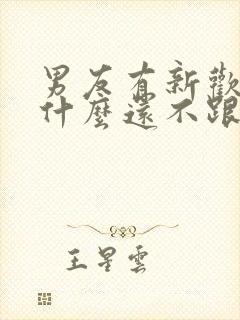 男友有新歡
什麼還不跟
王星雲